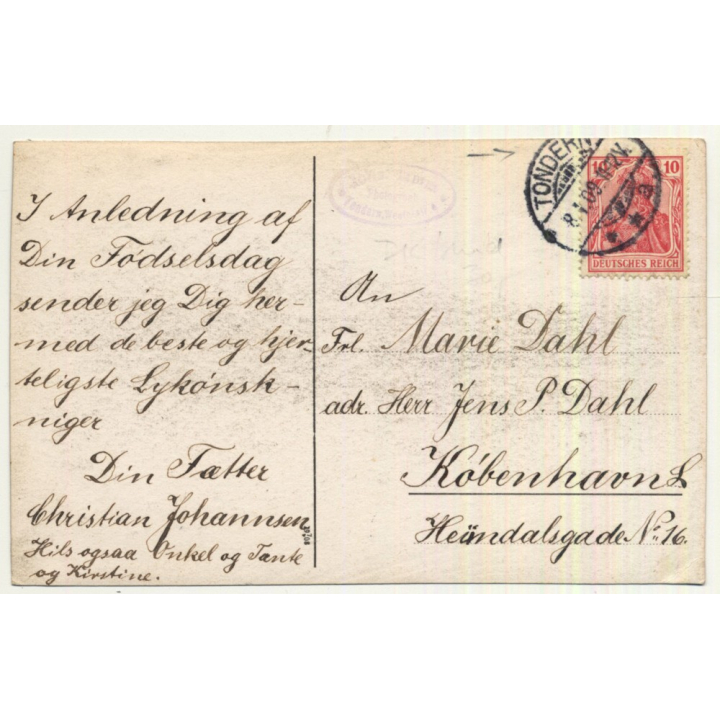 I Anledning af
Din Fødselsdag
sender jeg Dig her-
med de beste og hjer-
teligste Lykønsk-
niger
Din Fætter
Christian Johannsen
Hils ogsaa Onkel og Tante
og Kirstine.
TONDERN
8.1.09
a
10 10
DEUTSCHES REICH
An
Frl. Marie Dahl
adr. Herr Jens P. Dahl
København L.
Heimdalsgade No. 16.